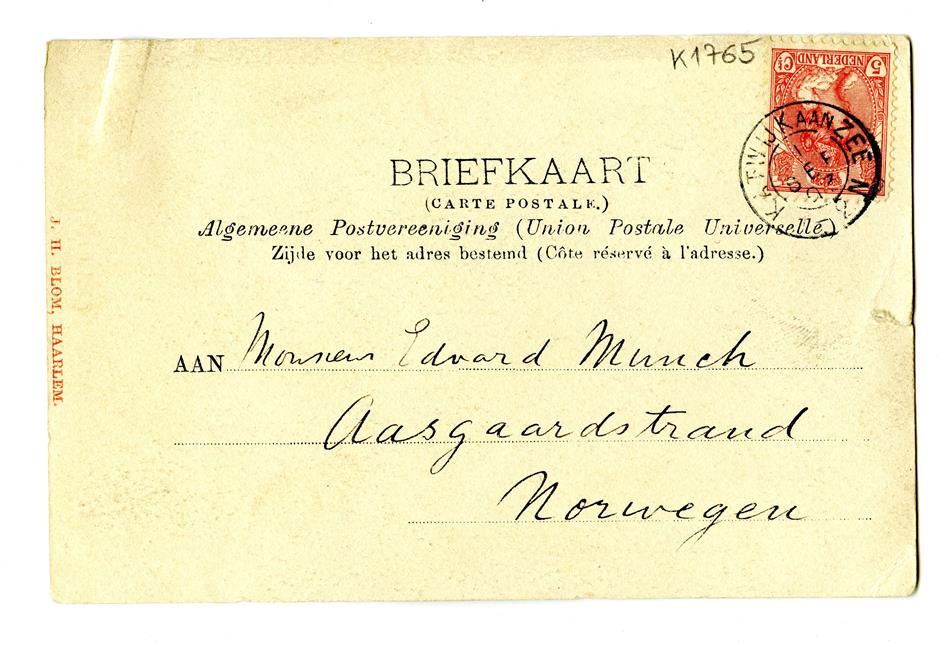 K1765
5 Ct NEDERLAND
KATWIJK AAN ZEE N
BRIEFKAART
(CARTE POSTALE.)
Algemeene Postvereeniging (Union Postale Universelle.)
Zijde voor het adres bestemd (Côte réservé à l'adresse.)
AAN Monsieur Edvard Munch
Aasgaardstrand
Norwegen
J. H. BLOM, HAARLEM.